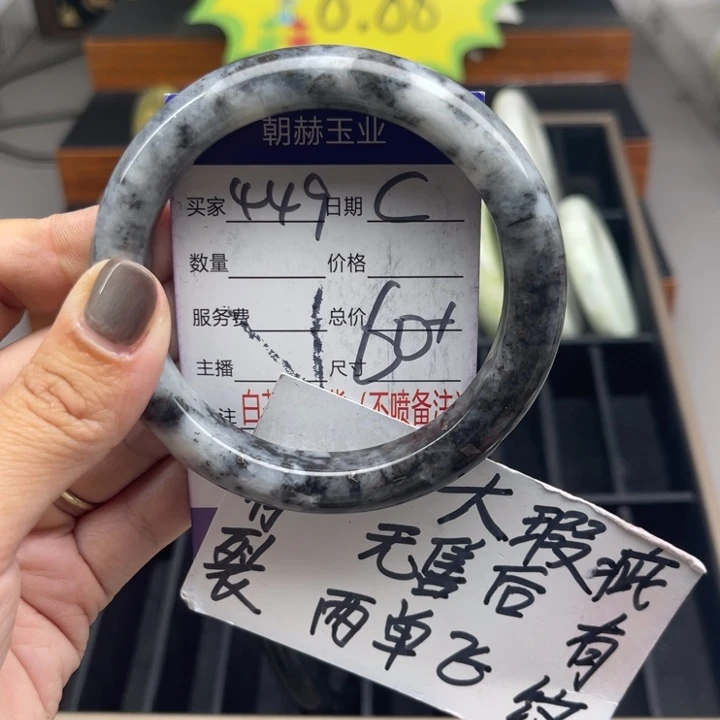 8.88
朝赫玉业
买家 449 日期 C
数量 价格
服务费 总价
主播 尺寸 60+
注 (不喷备注)
大瑕疵有纹
无售后
两单飞
裂